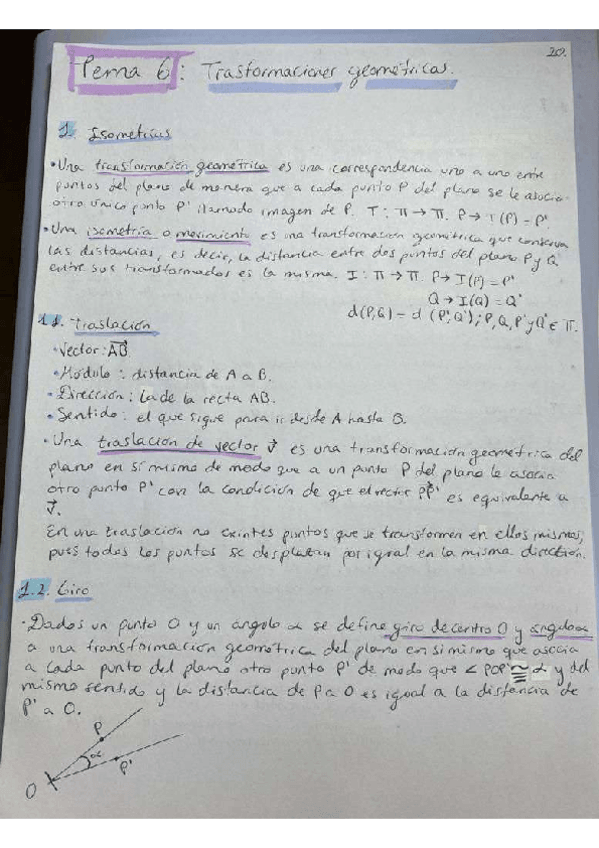 20.
Tema 6: Trasformaciones geométricas.
1. Isometrías
• Una transformación geométrica es una correspondencia uno a uno entre
puntos del plano de manera que a cada punto P del plano se le asocia
otro único punto P' llamado imagen de P. T: π → π. P → T(P) = P'
• Una isometría o movimiento es una transformación geométrica que conserva
las distancias, es decir, la distancia entre dos puntos del plano P y Q
entre sus transformados es la misma. I: π → π. P → I(P) = P'
Q → I(Q) = Q'
d(P,Q) = d (P',Q'); P, Q, P' y Q' ∈ π.
1.1. Traslación
• Vector: AB.
• Módulo: distancia de A a B.
• Dirección: la de la recta AB.
• Sentido: el que sigue para ir desde A hasta B.
• Una traslación de vector v es una transformación geométrica del
plano en sí mismo de modo que a un punto P del plano le asocia
otro punto P' con la condición de que el vector PP' es equivalente a
v.
En una traslación no existes puntos que se transformen en ellos mismos,
pues todos los puntos se desplazan por igual en la misma dirección.
1.2. Giro
• Dados un punto O y un angulo α se define giro de centro O y ángulo α
a una transformación geométrica del plano en si mismo que asocia
a cada punto del plano otro punto P' de modo que ∠ POP' ≅ α y del
mismo sentido y la distancia de P a O es igual a la distancia de
P' a O.
P
α
P'
O